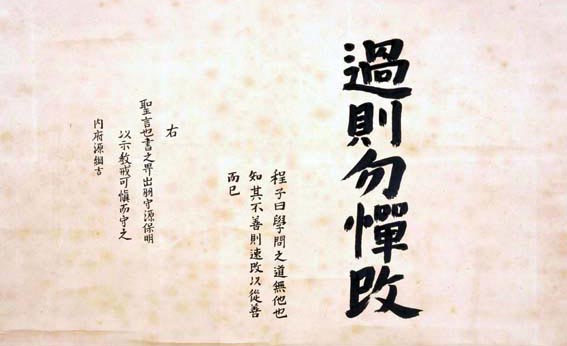 過則勿憚改
程子曰學問之道無他也
知其不善則速改以從善
而已
右
聖言也書之畀出羽守源保明
以示教戒可愼而守之
内府源綱吉